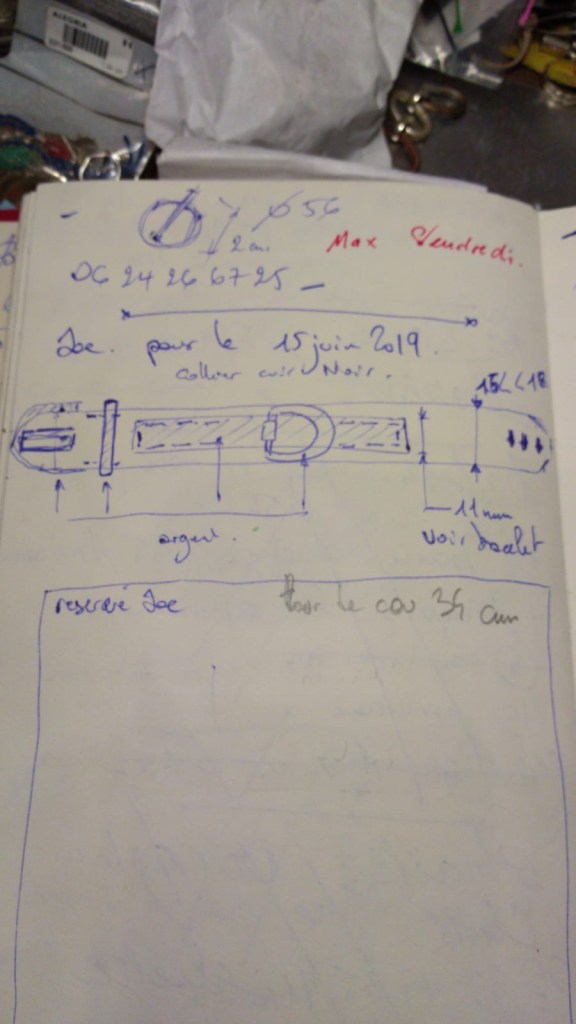 ALEGRIA
- ⌀ 56
2 cm
Max Vendredi.
06 24 26 67 25 -
Joe. pour le 15 juin 2019.
collier cuir Noir.
15< <18
11 mm
argent.
voir bracelet
reservé Joe
Tour le cou 34 cm